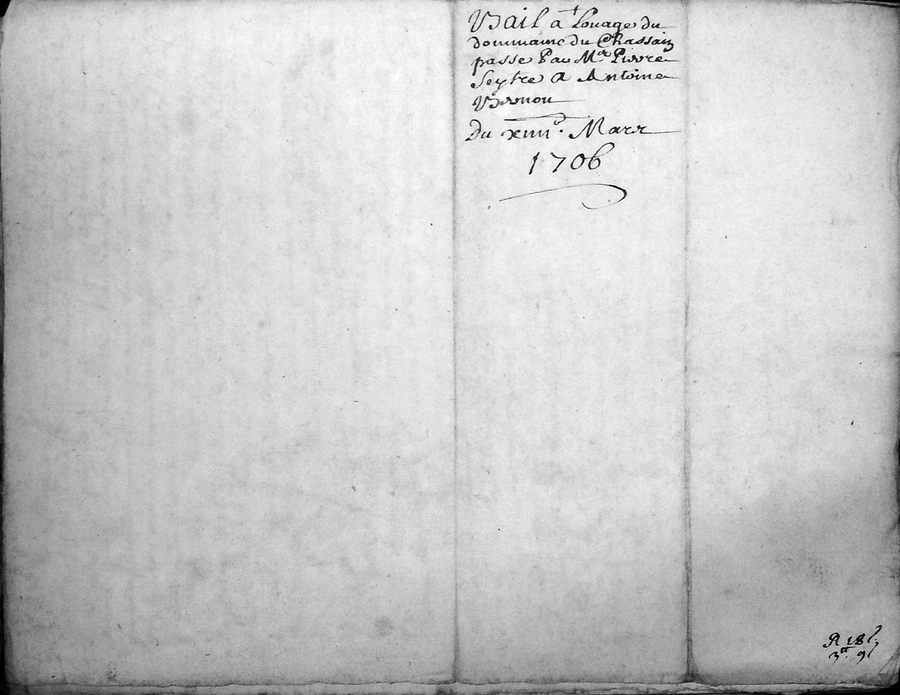 Bail a Louage du
dommaine du Chassaiz
passé Par Mr Pierre
Seytre a Antoine
Vernou
Du xiiiie. Mars
1706
R 18 s
3tt 9 s